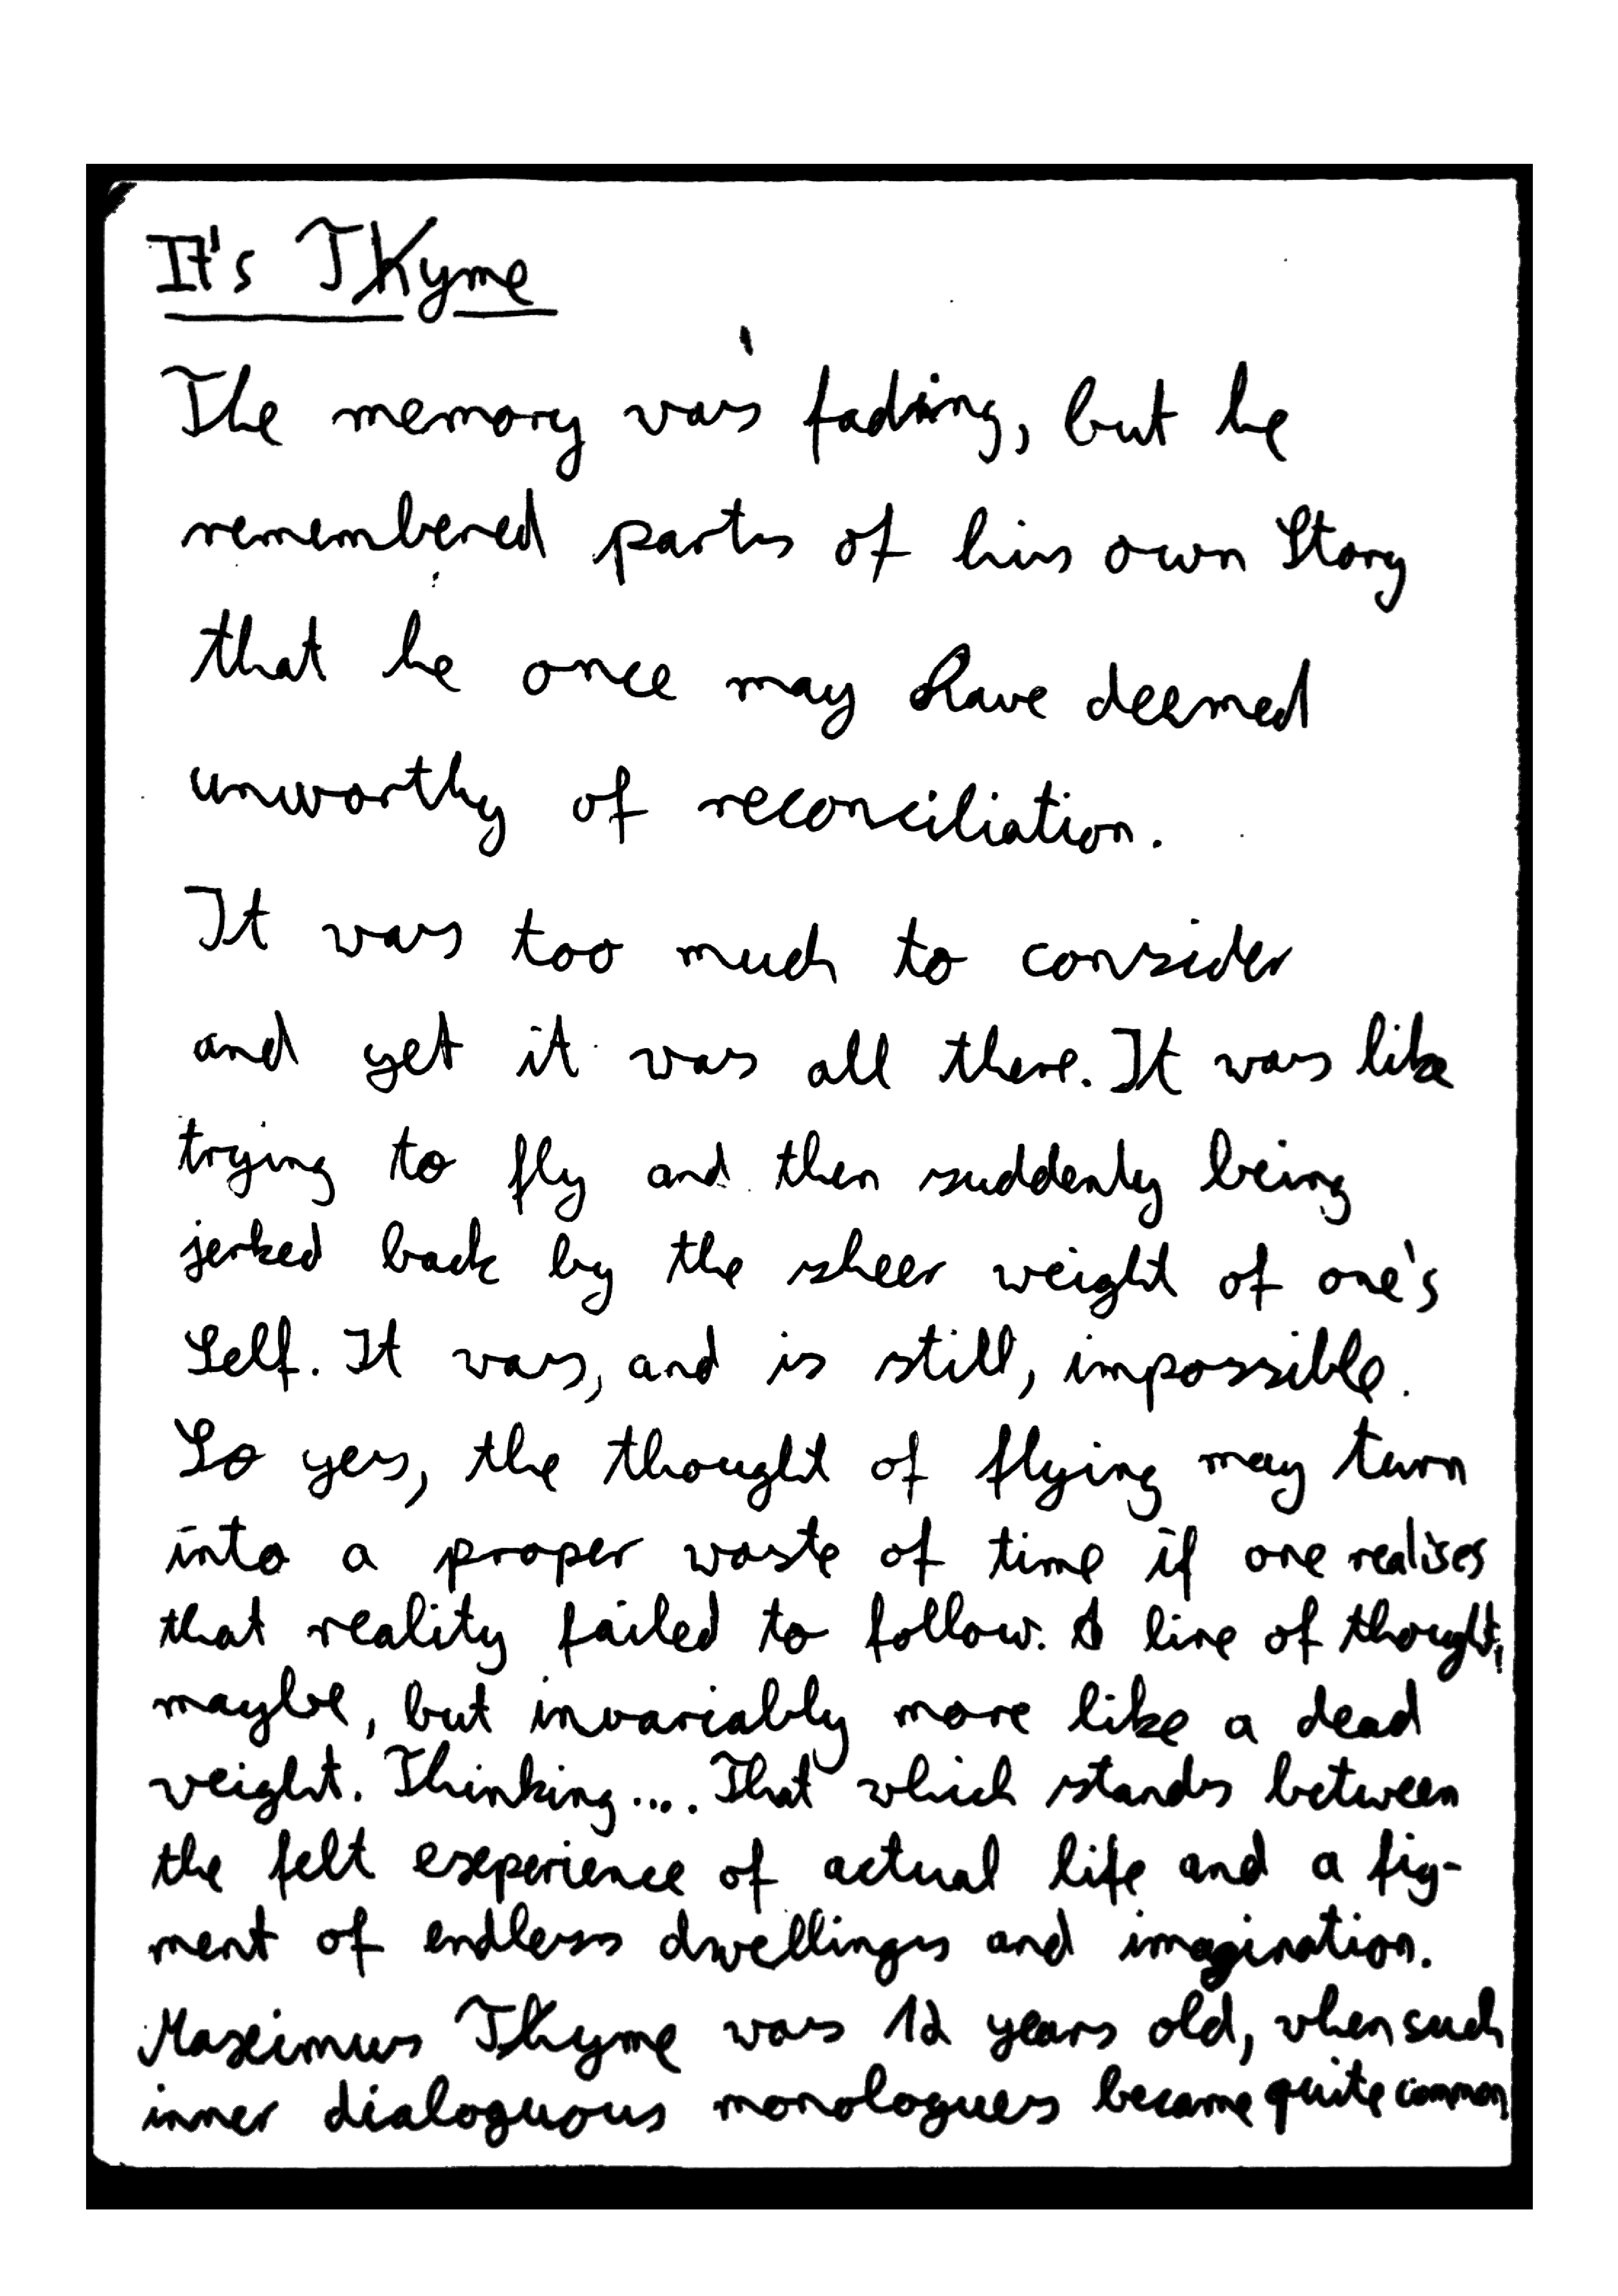 It's Thyme
The memory was fading, but he
remembered parts of his own Story
that he once may have deemed
unworthy of reconciliation.
It was too much to consider
and yet it was all there. It was like
trying to fly and then suddenly being
jerked back by the sheer weight of one's
Self. It was, and is still, impossible.
So yes, the thought of flying may turn
into a proper waste of time if one realises
that reality failed to follow. A line of thought,
maybe, but invariably more like a dead
weight. Thinking.... That which stands between
the felt experience of actual life and a fig-
ment of endless dwellings and imagination.
Maximus Thyme was 12 years old, when such
inner dialoguous monologues became quite common